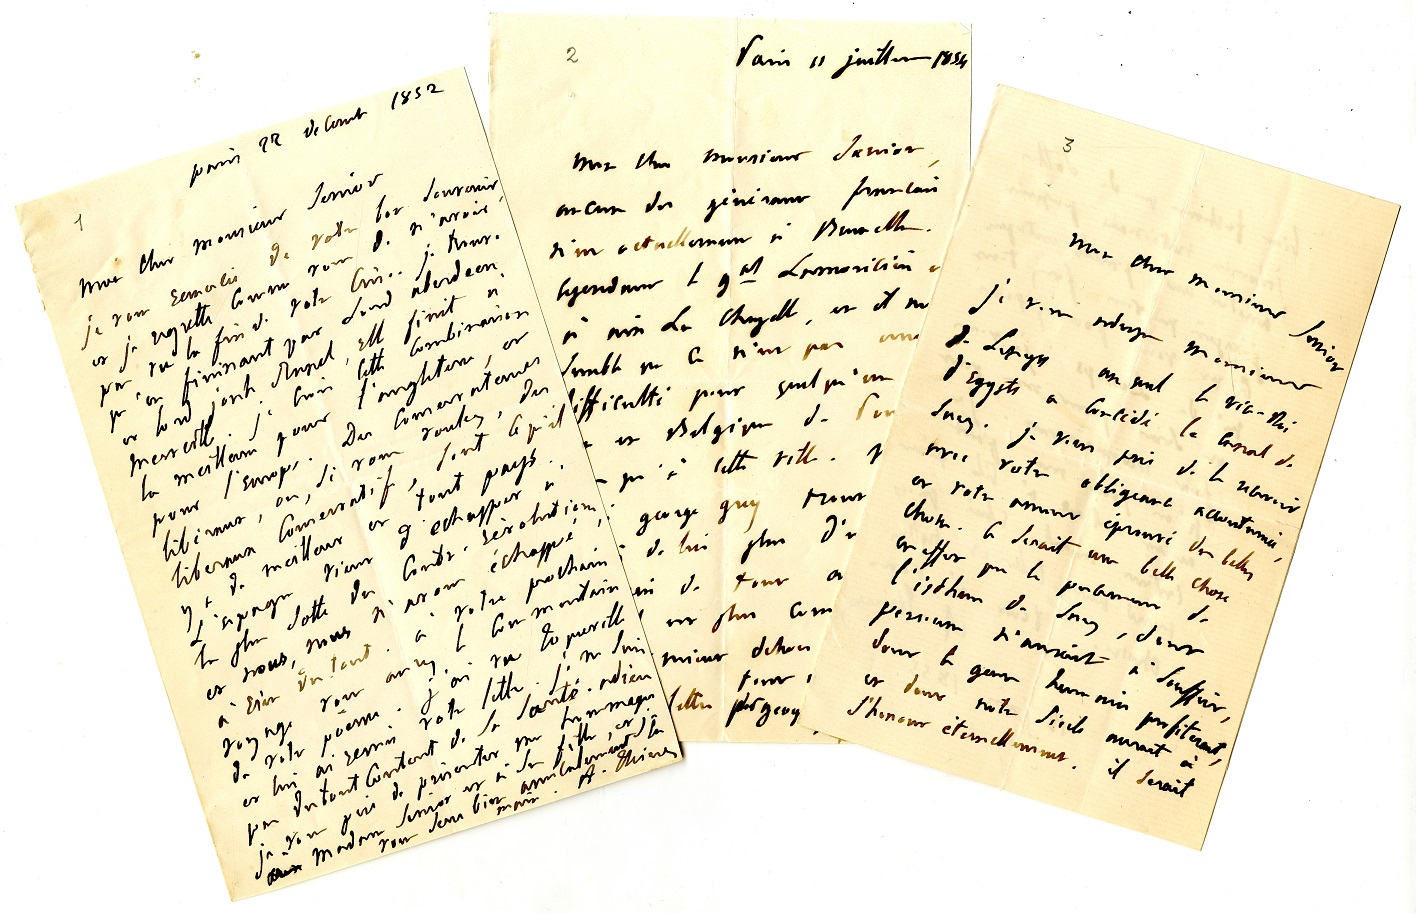 1
paris 22 décemb 1852
mon cher monsieur Senior
je vous remercie de votre bon souvenir
et je regrette comme vous de n'avoir
pas vu la fin de votre crise. je trouve
qu'en finissant par Lord aberdeen
et lord john Russel, elle finit à
merveille. je crois cette combinaison
la meilleure pour l'angleterre, et
pour l'Europe. Des conservateurs
libéraux, ou, si vous voulez, des
libéraux conservatifs, sont ce qu'il
y a de meilleur en tout pays.
L'espagne vient d'échapper à
la plus sotte des contre-révolutions,
et nous, nous n'avons échappé
à rien du tout. à votre prochain
voyage vous aurez le commentaire
de votre poème. j'ai vu Tocqueville
et lui ai remis votre lettre. je ne suis
pas du tout content de sa santé. adieu
je vous prie de présenter mes hommages
à Madame Senior et à sa fille, et je
vous serre bien amicalement la
main. A. Thiers
2
Paris 11 juillet 1854
Mon cher monsieur Senior,
aucun des généraux français
n'est actuellement à Bruxelles.
Cependant le gal Lamoricière e
à aix La Chapelle, et il me
semble que ce n'est pas une
difficulté pour quelqu'un
en Belgique de
qu'à cette ville.
george grey
de lui plus
de tour
est plus com
mieux dehors
pour
lettre
3
Mon cher monsieur Senior
je vous adresse monsieur
de Lesseps auquel le vice-Roi
d'Egypte a concédé le canal de
Suez. je vous prie de le recevoir
avec votre obligeance accoutumée,
et votre amour éprouvé des belles
choses. ce serait une belle chose
en effet que le percement de
l'isthme de Suez, dont
personne n'aurait à souffrir,
dont le genre humain profiterait,
et dont notre siècle aurait à
l'honneur éternellement. il serait